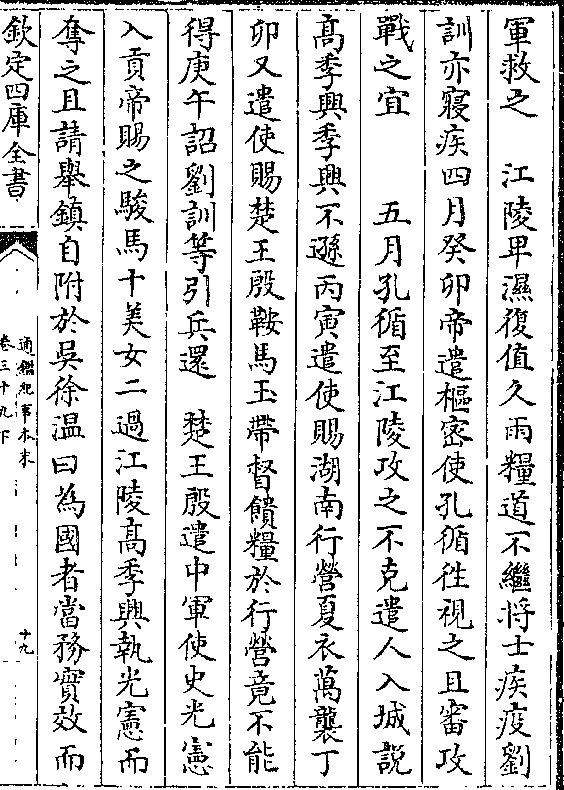 軍救之　　江陵卑濕復值久雨糧道不繼將士疾疫劉
訓亦寢疾四月癸卯帝遣樞密使孔循往視之且審攻
戰之宜　　五月孔循至江陵攻之不克遣人入城説
高季興季興不遜丙寅遣使賜湖南行營夏衣萬襲丁
卯又遣使賜楚王殷鞍馬玉帶督饋糧於行營竟不能
得庚午詔劉訓等引兵還　楚王殷遣中軍使史光憲
入貢帝賜之駿馬十美女二過江陵高季興執光憲而
奪之且請舉鎮自附於吳徐温曰為國者當務實效而
欽定四庫全書
通鑑紀事本末
卷三十九下
十九